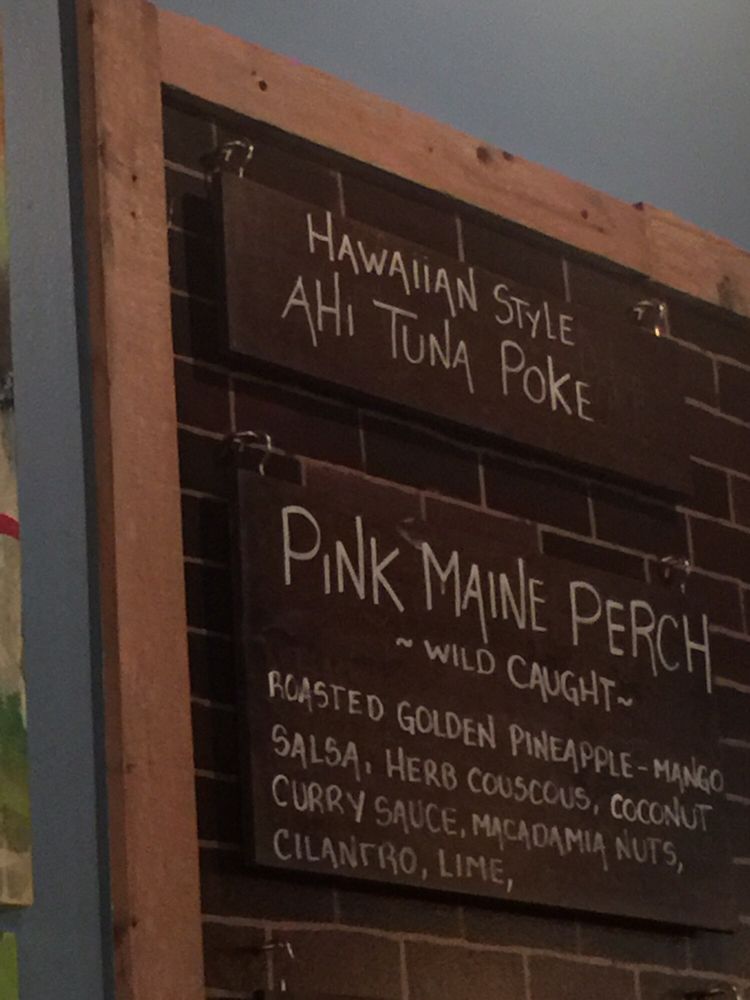 HAWAIIAN STYLE
AHI TUNA POKE
PINK MAINE PERCH
~ WILD CAUGHT ~
ROASTED GOLDEN PINEAPPLE-MANGO
SALSA, HERB COUSCOUS, COCONUT
CURRY SAUCE, MACADAMIA NUTS,
CILANTRO, LIME,